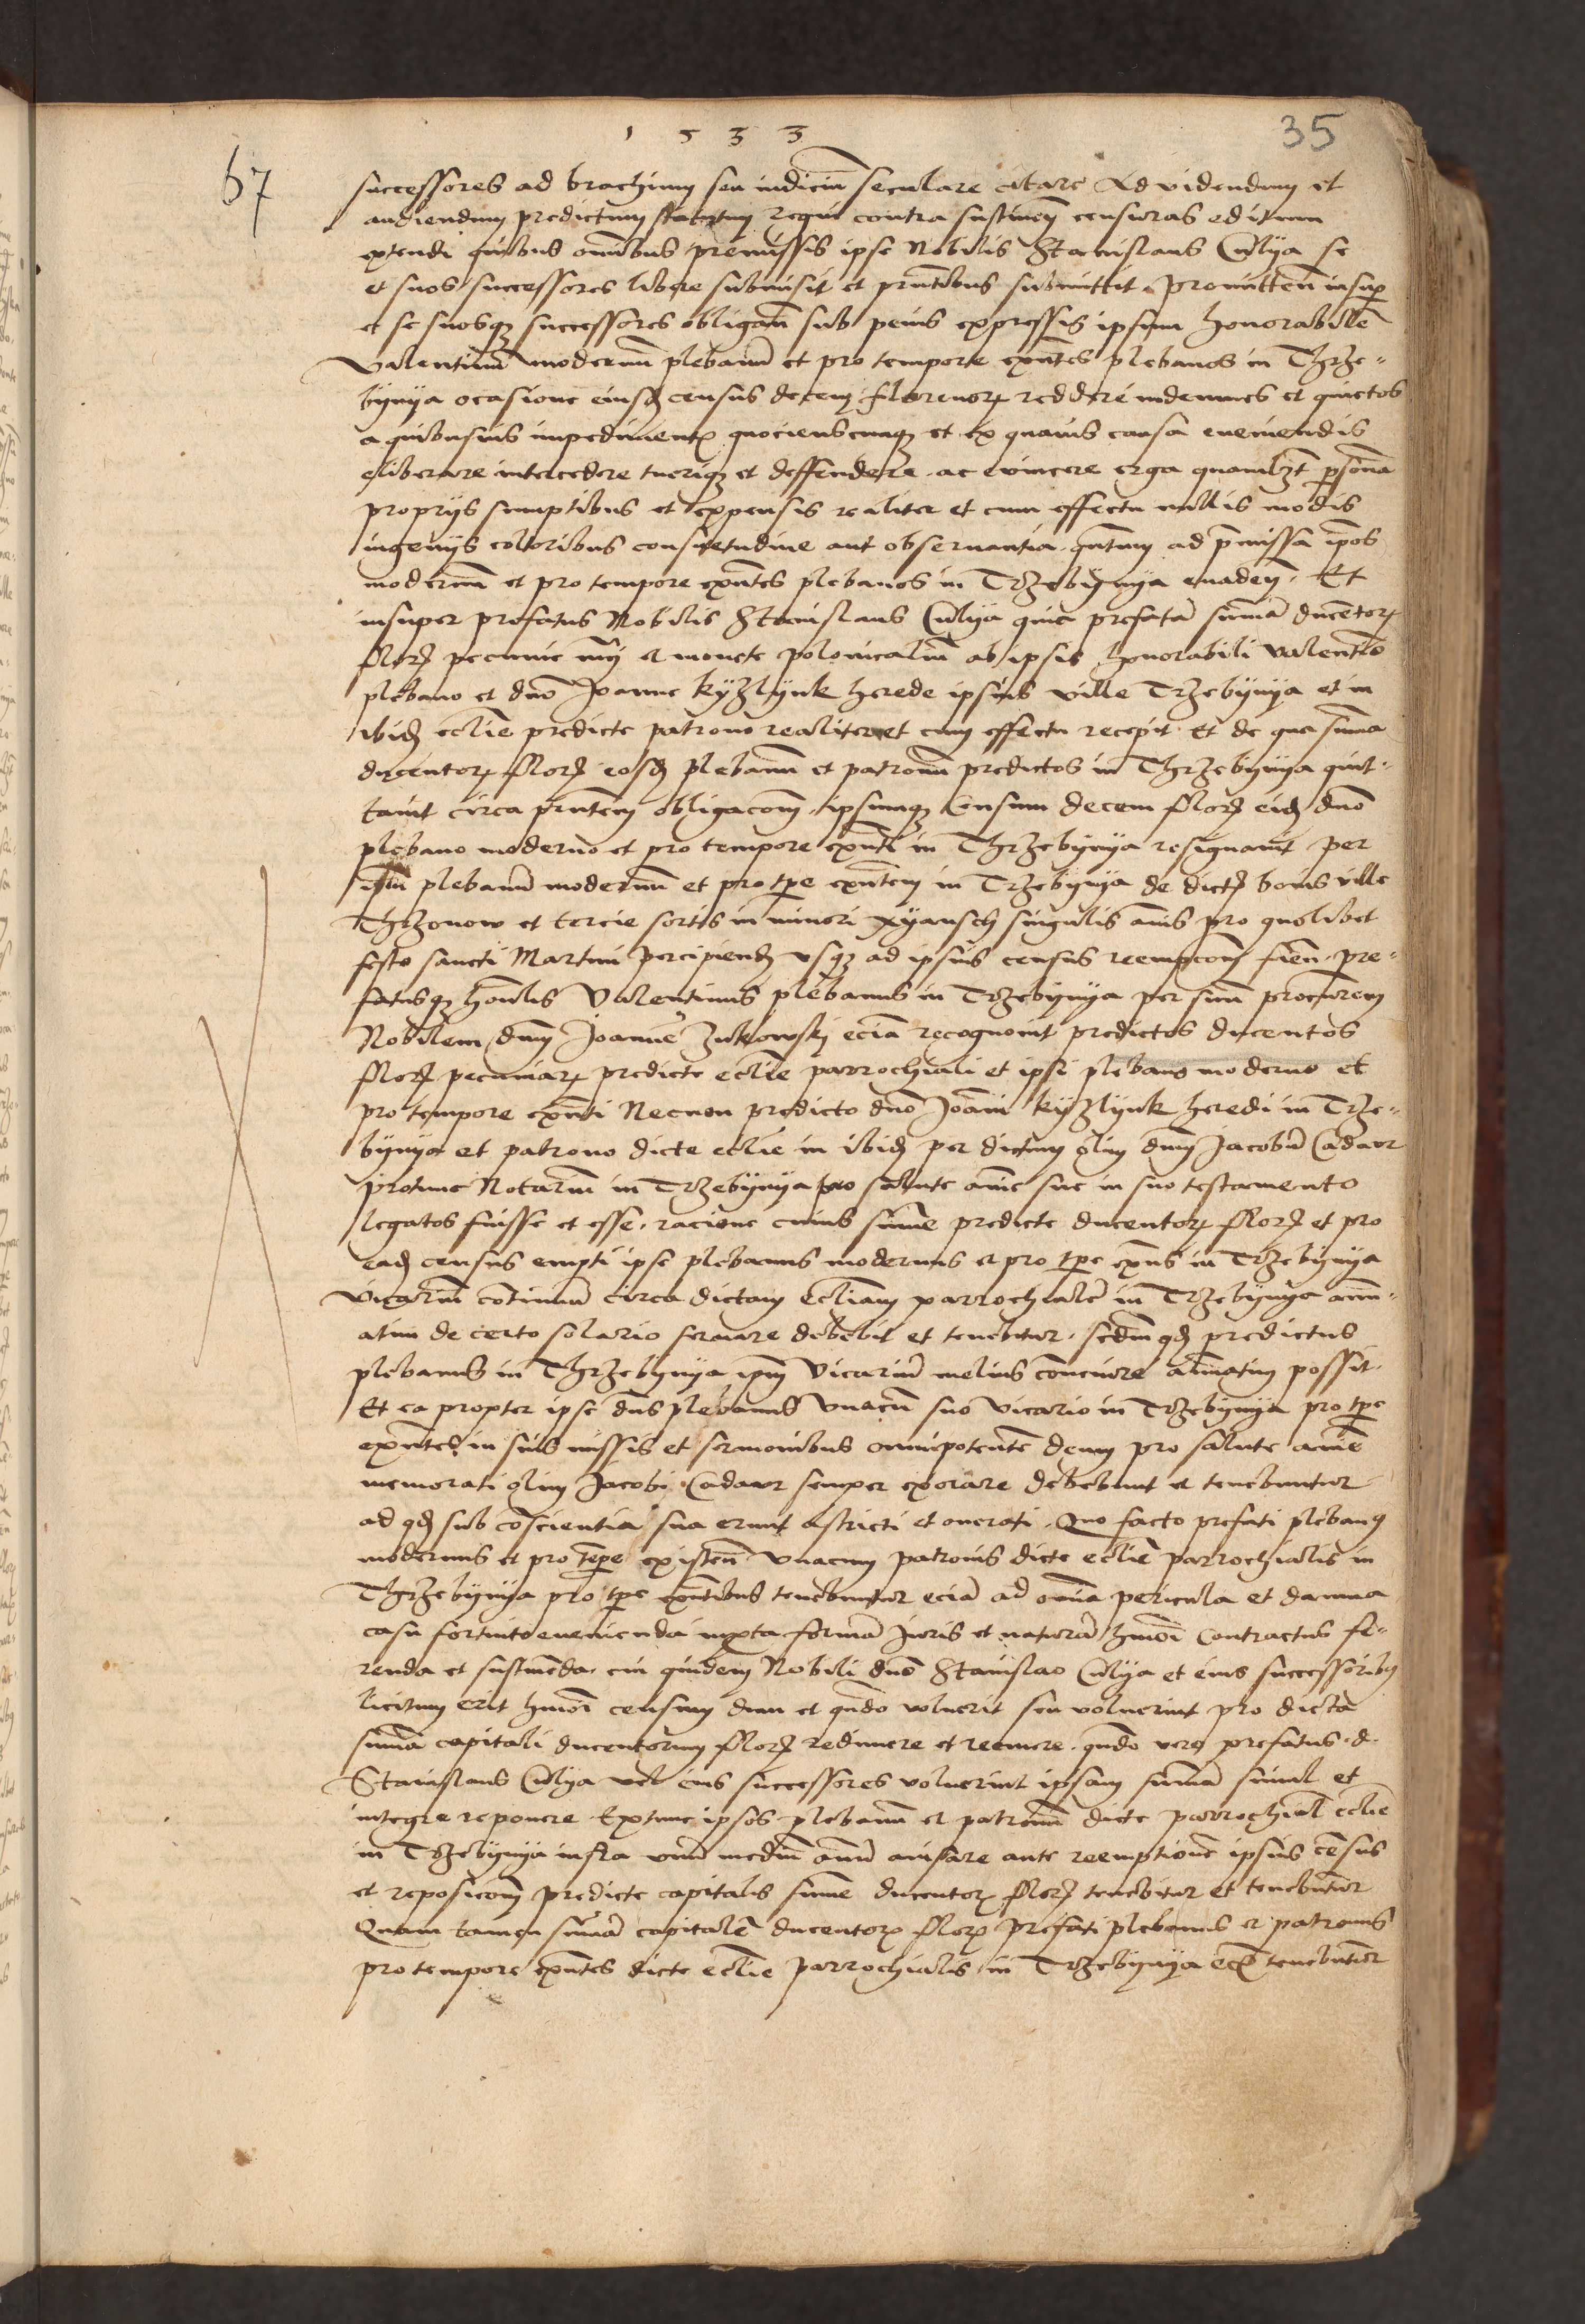 1 5 3 3
35
67
successores ad brachium seu iudiciu seculare citare Ad videndum et
audiendum predictum statutum regni contra sustinen censuras editum
extendi quibus omibus premissis ipse Nobilis Stanislaus Culya se
et suos successores libere submisit et pntibus submittit. Promitten insup
et se suosqz successores obligan sub penis expressis ipsum honorabile
Valentinu modernu plebanu et pro tempore exntes plebanos in Thrze-
bynya ocasione eiusd census decem florenor reddere indemnes et quietos
a quibusuis impediment quocienscunqz et ex quauis causa eueniendis
eliberare intercedere tueriqz et deffendere ac euincere erga quamlzt psona
proprys sumptibus et expensis realiter et cum effectu nullis modis
ingenys coloribus consuetudine aut obseruantia quntum ad pmissa ipos
modernu et pro tempore exntes plebanos in Trzebynya euaden. Et
insuper prefatus Nobilis Stanislaus Culya quia prefata suma ducentor
flor pecunie et monete polonicaliu ab ipsis honorabili Valentio
plebano et dno Joanne kyzlynk herede ipsius ville Trzebynya et in
ibid eclie predicte patrono realiter et cum effectu recepit Et de qua suma
ducentor flor eosd plebanu et patronu predictos in Thrzebynya quit-
tauit circa pntem obligacom ipsumqz Censum decem flor eid dno
plebano moderno et pro tempore exnti in Thrzebynya resignauit per
ipsu plebanu modernu et pro tpe exntem in Trzebynya de dict bonis ville
Thrzonow et tercie sortis in minori xyansch singulis anis pro quolibet
festo sancti Martini percipiend vsqz ad ipsius census reempcom fien. pre-
fatusqz honlis Valentinus plebanus in Trzebynya per suu procurem
Nobilem dnm Joanne Zukowskj ecia recognouit predictos ducentos
flor pecuniar predicte eclie parrochiali et ipsi plebano moderno et
pro tempore exnti Necnon predicto dno Joani kyzlynk heredi in Trze-
bynya et patrono dicte eclie in ibid per dictum olim dnm Jacobu Cadaur
protunc Notariu in Trzebynya pro salute anie sue in suo testamento
legatos fuisse et esse. racione cuius sume predicte ducentor flor et pro
ead census empti ipse plebanus modernus et pro tpe exns in Trzebynya
vicariu continuu circa dictam Ecliam parrochiale in Trzebynya annu-
atim de certo solario seruare debebit et tenebitur. sedm qd predictus
plebanus in Thrzebynya ipm Vicariu melius conuenire possit.
Et ea propter ipse dns plebanus vnacu suo vicario in Trzebynya pro tpe
exntes in suis missis et sermonibus omnipotente deum pro salute anie
memorati olim Jacobi Cadaur semper exorare debebunt et tenebuntur
ad qd sub conscientia sua erunt astricti et onerati. Quo facto prefati plebanus
modernus et pro tempe existen vnacum patronis dicte eclie parrochialis in
Thrzebynya pro tpe exntibus tenebuntur ecia ad omia pericula et damna
casu fortuito euenienda iuxta forma iuris et natura hmoi Contractus fe-
renda et sustinenda. cui quidem Nobili dno Stanislao Culya et eius successoribus
licitum erit hmoi censum dum et qndo voluerit seu voluerint pro dicta
suma capitali ducentorum flor redimere et reemere. qndo vero prefatus .d.
Stanislaus Culya vel eius successores voluerint ipsam suma simul et
integre reponere Extunc ipsos plebanu et patronu dicte parrochial eclie
in Trzebynya infra vnu mediu annu auisare ante reemptione ipsius census
et reposicom predicte capitalis sume ducentor flor tenebitur et tenebuntur
Quam tamen suma capitale ducentor flor prefati plebanus et patronus
pro tempore exntes dicte eclie parrochialis in Trzebynya ecia tenebuntur